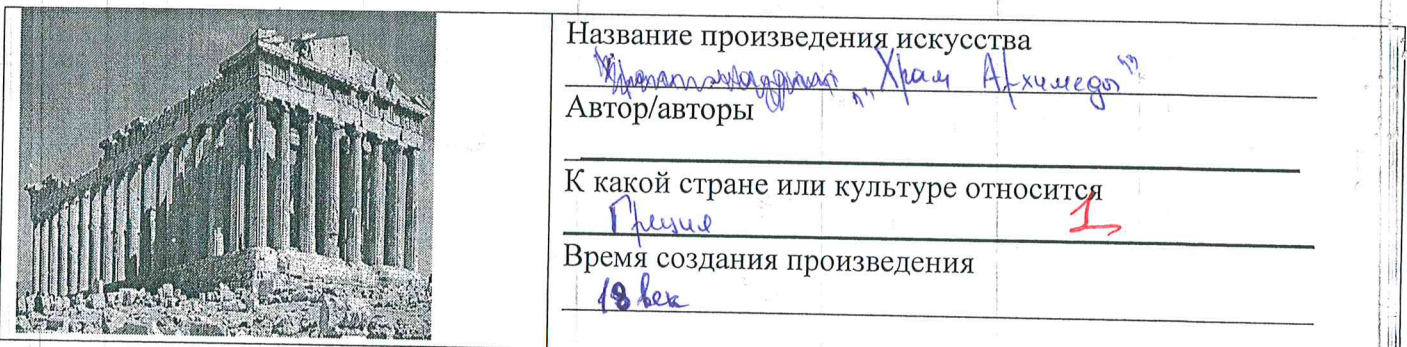 Название произведения искусства
"Храм Архимеды"
Автор/авторы
К какой стране или культуре относится
Греция 1
Время создания произведения
18 век